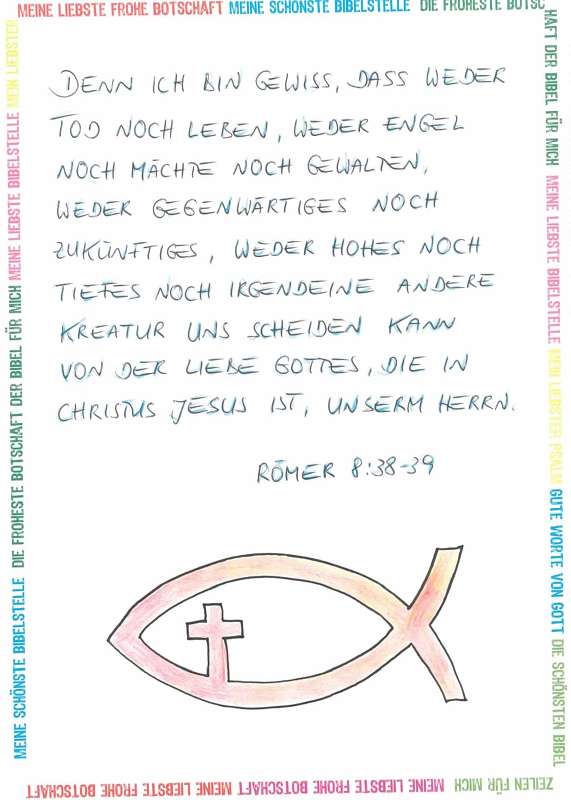 MEINE LIEBSTE FROHE BOTSCHAFT MEINE SCHÖNSTE BIBELSTELLE DIE FROHESTE BOTSC
HAFT DER BIBEL FÜR MICH MEINE LIEBSTE BIBELSTELLE MEIN LIEBSTER PSALM GUTE WORTE VON GOTT DIE SCHÖNSTEN BIBEL
DENN ICH BIN GEWISS, DASS WEDER
TOD NOCH LEBEN, WEDER ENGEL
NOCH MÄCHTE NOCH GEWALTEN,
WEDER GEGENWÄRTIGES NOCH
ZUKÜNFTIGES, WEDER HOHES NOCH
TIEFES NOCH IRGENDEINE ANDERE
KREATUR UNS SCHEIDEN KANN
VON DER LIEBE GOTTES, DIE IN
CHRISTUS JESUS IST, UNSERM HERRN.
RÖMER 8:38-39
ZEILEN FÜR MICH MEINE LIEBSTE FROHE BOTSCHAFT MEINE LIEBSTE FROHE BOTSCHAFT
MEINE SCHÖNSTE BIBELSTELLE DIE FROHESTE BOTSCHAFT DER BIBEL FÜR MICH MEINE LIEBSTE BIBELSTELLE MEIN LIEBSTER